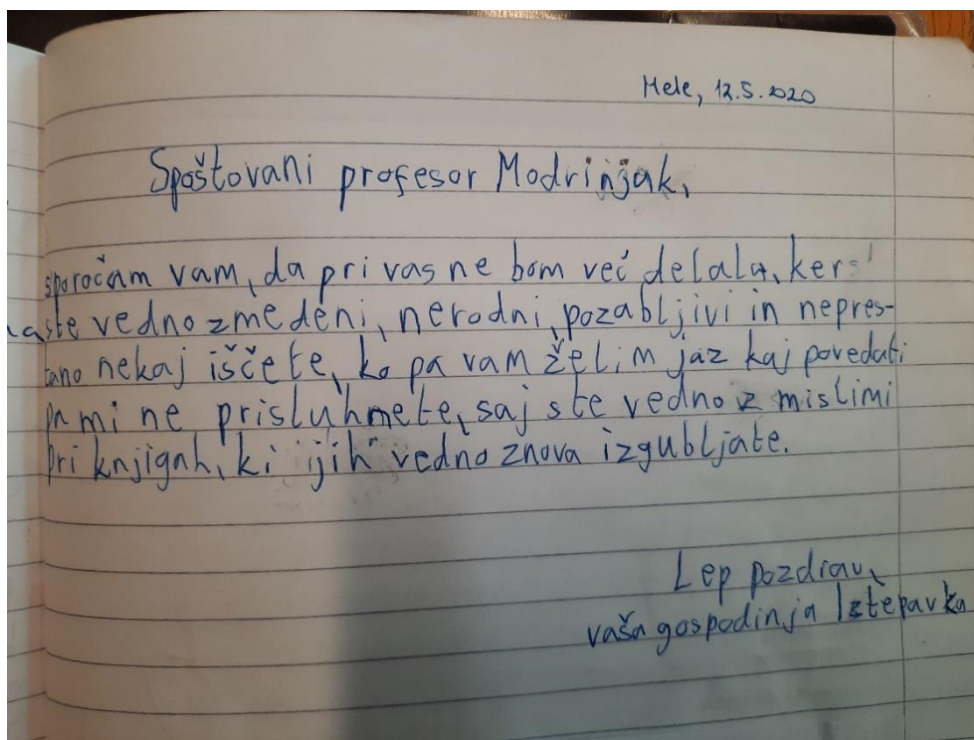 Hele, 12.5.2020
Spoštovani profesor Modrinjak,
sporočam vam, da pri vas ne bom več delala, ker
ste vedno zmedeni, nerodni, pozabljivi in nepres-
tano nekaj iščete, ko pa vam želim jaz kaj povedati
pa mi ne prisluhnete, saj ste vedno z mislimi
pri knjigah, ki jih vedno znova izgubljate.
Lep pozdrav,
vaša gospodinja Iztepavka